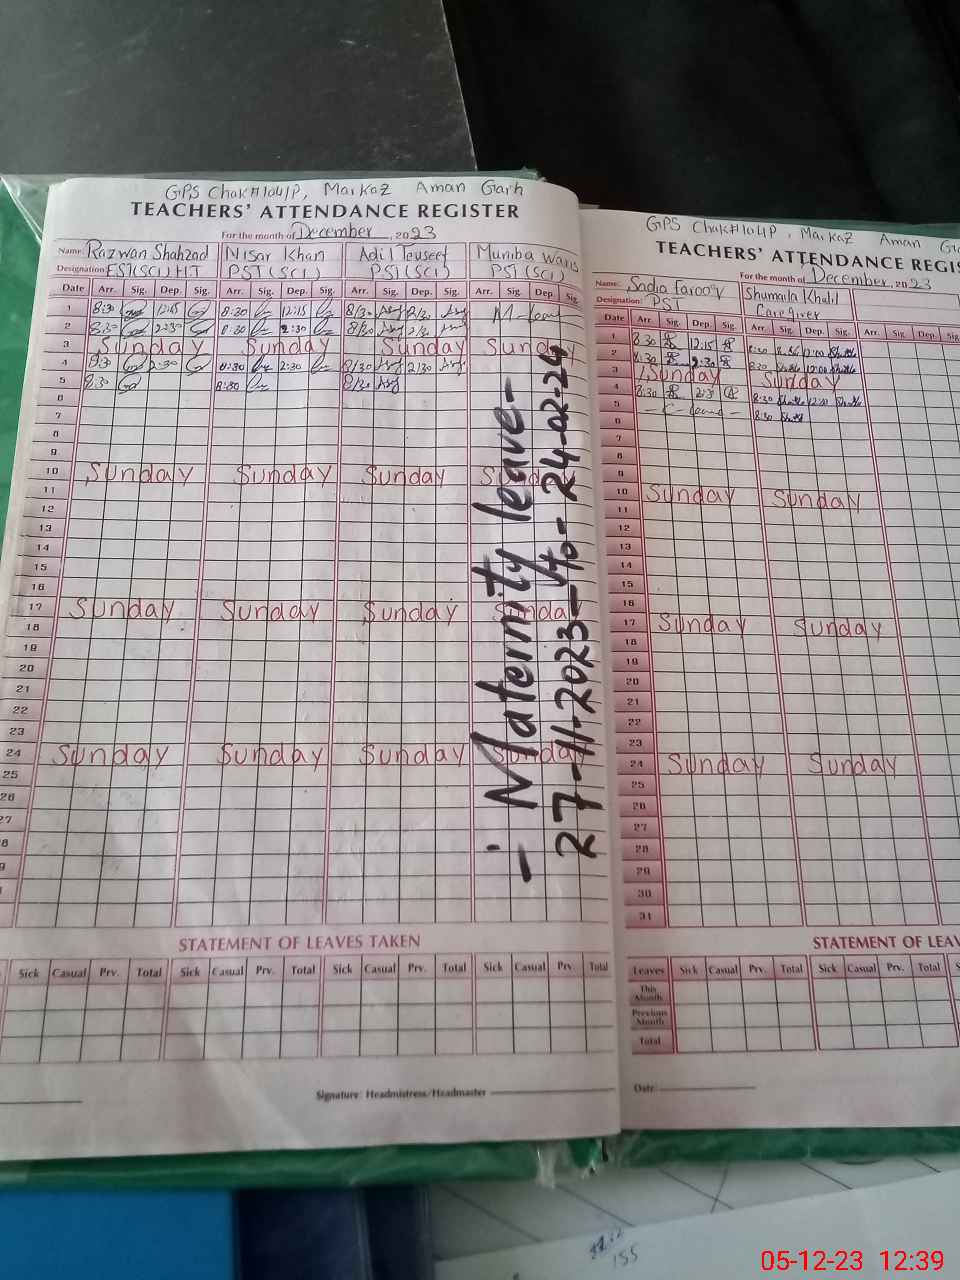 GPS Chak#104/P, Markaz Aman Garh
TEACHERS' ATTENDANCE REGISTER
For the month of December, 2023
Name: Razwan Shahzad Nisar Khan Adil Tauseef Muniba Waris
Designation: EST(SCI) HT PST(SCI) PST(SCI) PST(SCI)
Date Arr. Sig. Dep. Sig. Arr. Sig. Dep. Sig. Arr. Sig. Dep. Sig. Arr. Sig. Dep. Sig.
1 8:30 12:15 8:30 12:15 8/30 M-leave
2 8:30 2:30 8:30 2:30 8/30 2/30
3 Sunday Sunday Sunday Sunday
4 8:30 2:30 8:30 2:30 8/30 2/30
5 8:30 8:30 8/30
6
7
8
9
10 Sunday Sunday Sunday Sunday
11
12
13
14
15
16
17 Sunday Sunday Sunday Sunda
18
19
20
21
22
23
24 Sunday Sunday Sunday Sunday
25
26
27
8
9
- Maternity leave -
27-11-2023 to 24-02-24
STATEMENT OF LEAVES TAKEN
Sick Casual Prv. Total Sick Casual Prv. Total Sick Casual Prv. Total Sick Casual Prv. Total
Signature: Headmistress/Headmaster
GPS Chak#104P, Markaz Aman Ga
TEACHERS' ATTENDANCE REGIS
For the month of December, 2023
Name: Sadia farooq Shumaila Khalil
Designation: PST Caregiver
Date Arr. Sig. Dep. Sig. Arr. Sig. Dep. Sig. Arr. Sig. Dep. Sig.
1 8:30 12:15 8:30 12:00
2 8:30 2:30 8:30 12:00
3 Sunday Sunday
4 8:30 8:30 12:00
5 - C-leave - 8:30
6
7
8
9
10 Sunday Sunday
11
12
13
14
15
16
17 Sunday Sunday
18
19
20
21
22
23
24 Sunday Sunday
25
26
27
28
29
30
31
STATEMENT OF LEAV
Leaves Sick Casual Prv. Total Sick Casual Prv. Total S
This Month
Previous Month
Total
Date:
155
05-12-23 12:39